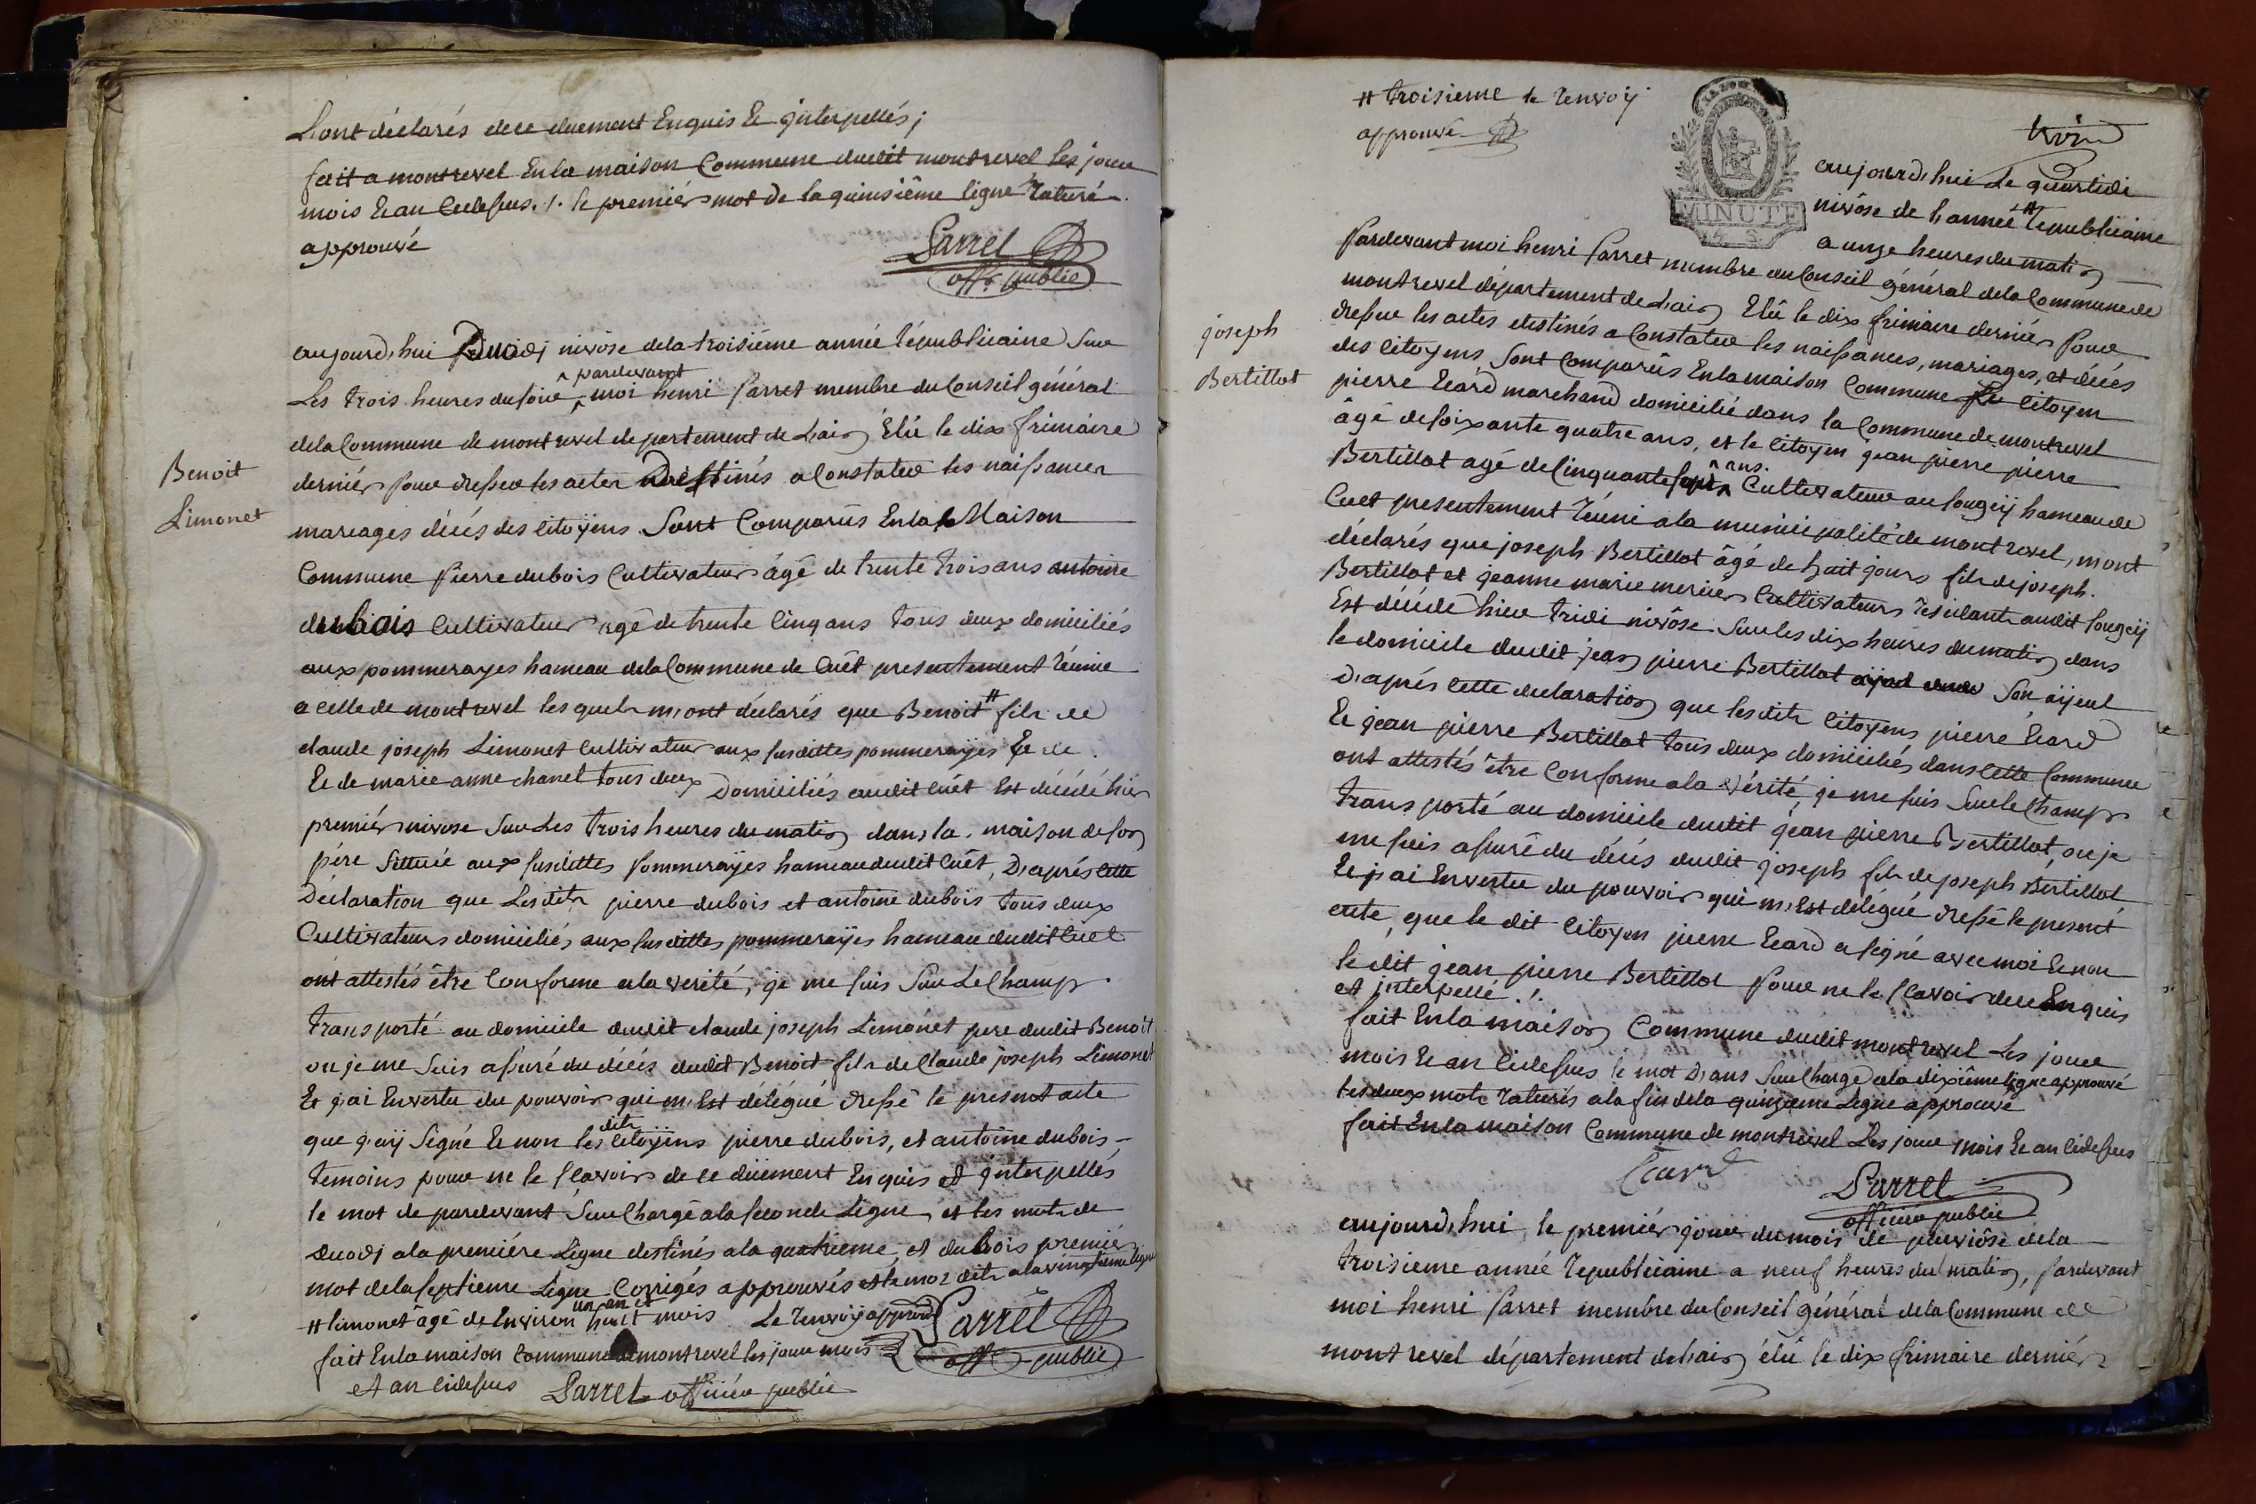 L'ont déclarés dece duement Enquis Et jnterpellés;
fait a montrevel En la maison Commune dudit montrevel les jour
mois Et an Cidessus. /. le premier mot de la quinsiême ligne Raturé
approuvé
Parret
offr. public
aujourd'hui Duodj nivôse dela troisiéme année républicaine Sur
Les trois heures du soir ^ pardevant moi henri Parret membre du Conseil général
dela Commune de montrevel departement de L'ain Elû le dix frimaire
dernier pour dresser les actes Destinés a Constater les naissances
Benoit
Limonet
mariages décés des citoÿens Sont Comparûs En la Maison
Commune Pierre dubois Cultivateur âgé de trente trois ans antoine
dubois Cultivateur agé de trente Cinq ans tous deux domiciliés
aux pommerayes hameau dela Commune de Cuêt presentement réunie
a celle de montrevel les quels m'ont déclarés que Benoit # fils de
claude joseph Limonet Cultivateur aux susdittes pommeraÿes Et de
Et de marie anne chanel tous deux Domiciliés audit cuêt Est décédé hier
premier nivose Sur Les trois heures du matin dans la maison de son
pére Sittuée aux susdittes Pommeraÿes hameau dudit Cuêt, D'aprés cette
Déclaration que Lesdits pierre dubois et antoine dubois tous deux
Cultivateurs domiciliés aux susdittes pommeraÿes hameau dudit Cuet
ont attestés être Conforme a la verité, je me suis Sur Le Champ
transporté au domicile dudit claude joseph Limonet pere dudit Benoit
ou je me Suis assuré du décés dudit Benoit fils de Claude joseph Limonet
Et j'ai En vertu du pouvoir qui m'Est délégué dressé le present acte
que j'aÿ Signé Et non les dits Citoÿens pierre dubois, et antoine dubois
temoins pour ne le sçavoir de ce dûement Enquis et jnterpellés
le mot de pardevant Sur Chargé a la seconde Ligne, et les mots de
duodj a la premiére Ligne destinés a la quatrieme, et dubois premier
mot de la septieme Ligne Corrigés approuvés et le mot dits a la vingtieme ligne
# limonet âgé d'Environ un an et huit mois Le Renvoÿ approuvé Parret
fait En la maison Commune de montrevel les jour mois offr public
et an cidessus Parret officier public
# troisieme le renvoÿ
approuvé
MINUTE
aujourd'hui Le quartidi
nivôse de l'année # republicaine
a onze heures du matin
Pardevant moi henri Parret membre du Conseil général dela Commune de
montrevel département de L'ain Elû le dix frimaire dernier Pour
dresser les actes destinés a Constater les naissances, mariages, et décés
joseph
Bertillot
des citoyens Sont Comparûs En la maison Commune Le citoyen
pierre Ecard marchand domicilié dans la Commune de montrevel
âgé de soixante quatre ans, et le citoyen jean pierre pierre
Bertillot agé de Cinquante sept ^ ans. Cultivateur au sougeÿ hameau de
Cuet presentement Réuni a la municipalité de montrevel, m'ont
déclarés que joseph Bertillot âgé de huit jours fils de joseph
Bertillot et jeanne marie mercier Cultivateurs résidants audit sougeÿ
Est décédé hier tridi nivôse Sur les dix heures du matin dans
le domicile dudit jean pierre Bertillot Son aÿeul
D'aprés cette declaration que lesdits citoyens pierre Ecard
Et jean pierre Bertillot tous deux domiciliés dans cette Commune
ont attestés être Conforme a la vérité, je me suis Sur le Champ
transporté au domicile dudit jean pierre Bertillot, ou je
me suis assuré du décés dudit joseph fils de joseph Bertillot
Et j'ai En vertu du pouvoir qui m'Est délégué dressé le present
acte, que le dit citoyen pierre Ecard a signé avec moi Et non
le dit jean pierre Bertillot Pour ne le sçavoir de ce Enquis
et jnterpellé. /.
fait En la maison Commune dudit montrevel Les jour
mois Et an cidessus le mot D'ans Sur Chargé a la dixiême ligne approuvé
les deux mots raturés a la fin de la quinzieme Ligne approuvé
fait En la maison Commune de montrevel Les jour mois Et an cidessus
Ecard
Parret
officier public
aujourd'hui le premiér jour du mois de pluviôse dela
troisieme année republicaine a neuf heures du matin, Pardevant
moi henri Parret membre du Conseil général dela Commune de
montrevel département de L'ain élû le dix frimaire derniér